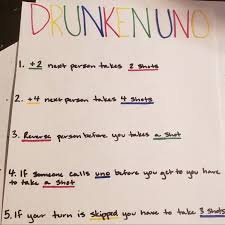 DRUNKEN UNO
1. +2 next person takes 2 shots
2. +4 next person takes 4 shots
3. Reverse person before you takes a shot
4. If someone calls uno before you get to you have
to take a shot
5. If your turn is skipped you have to take 3 shots